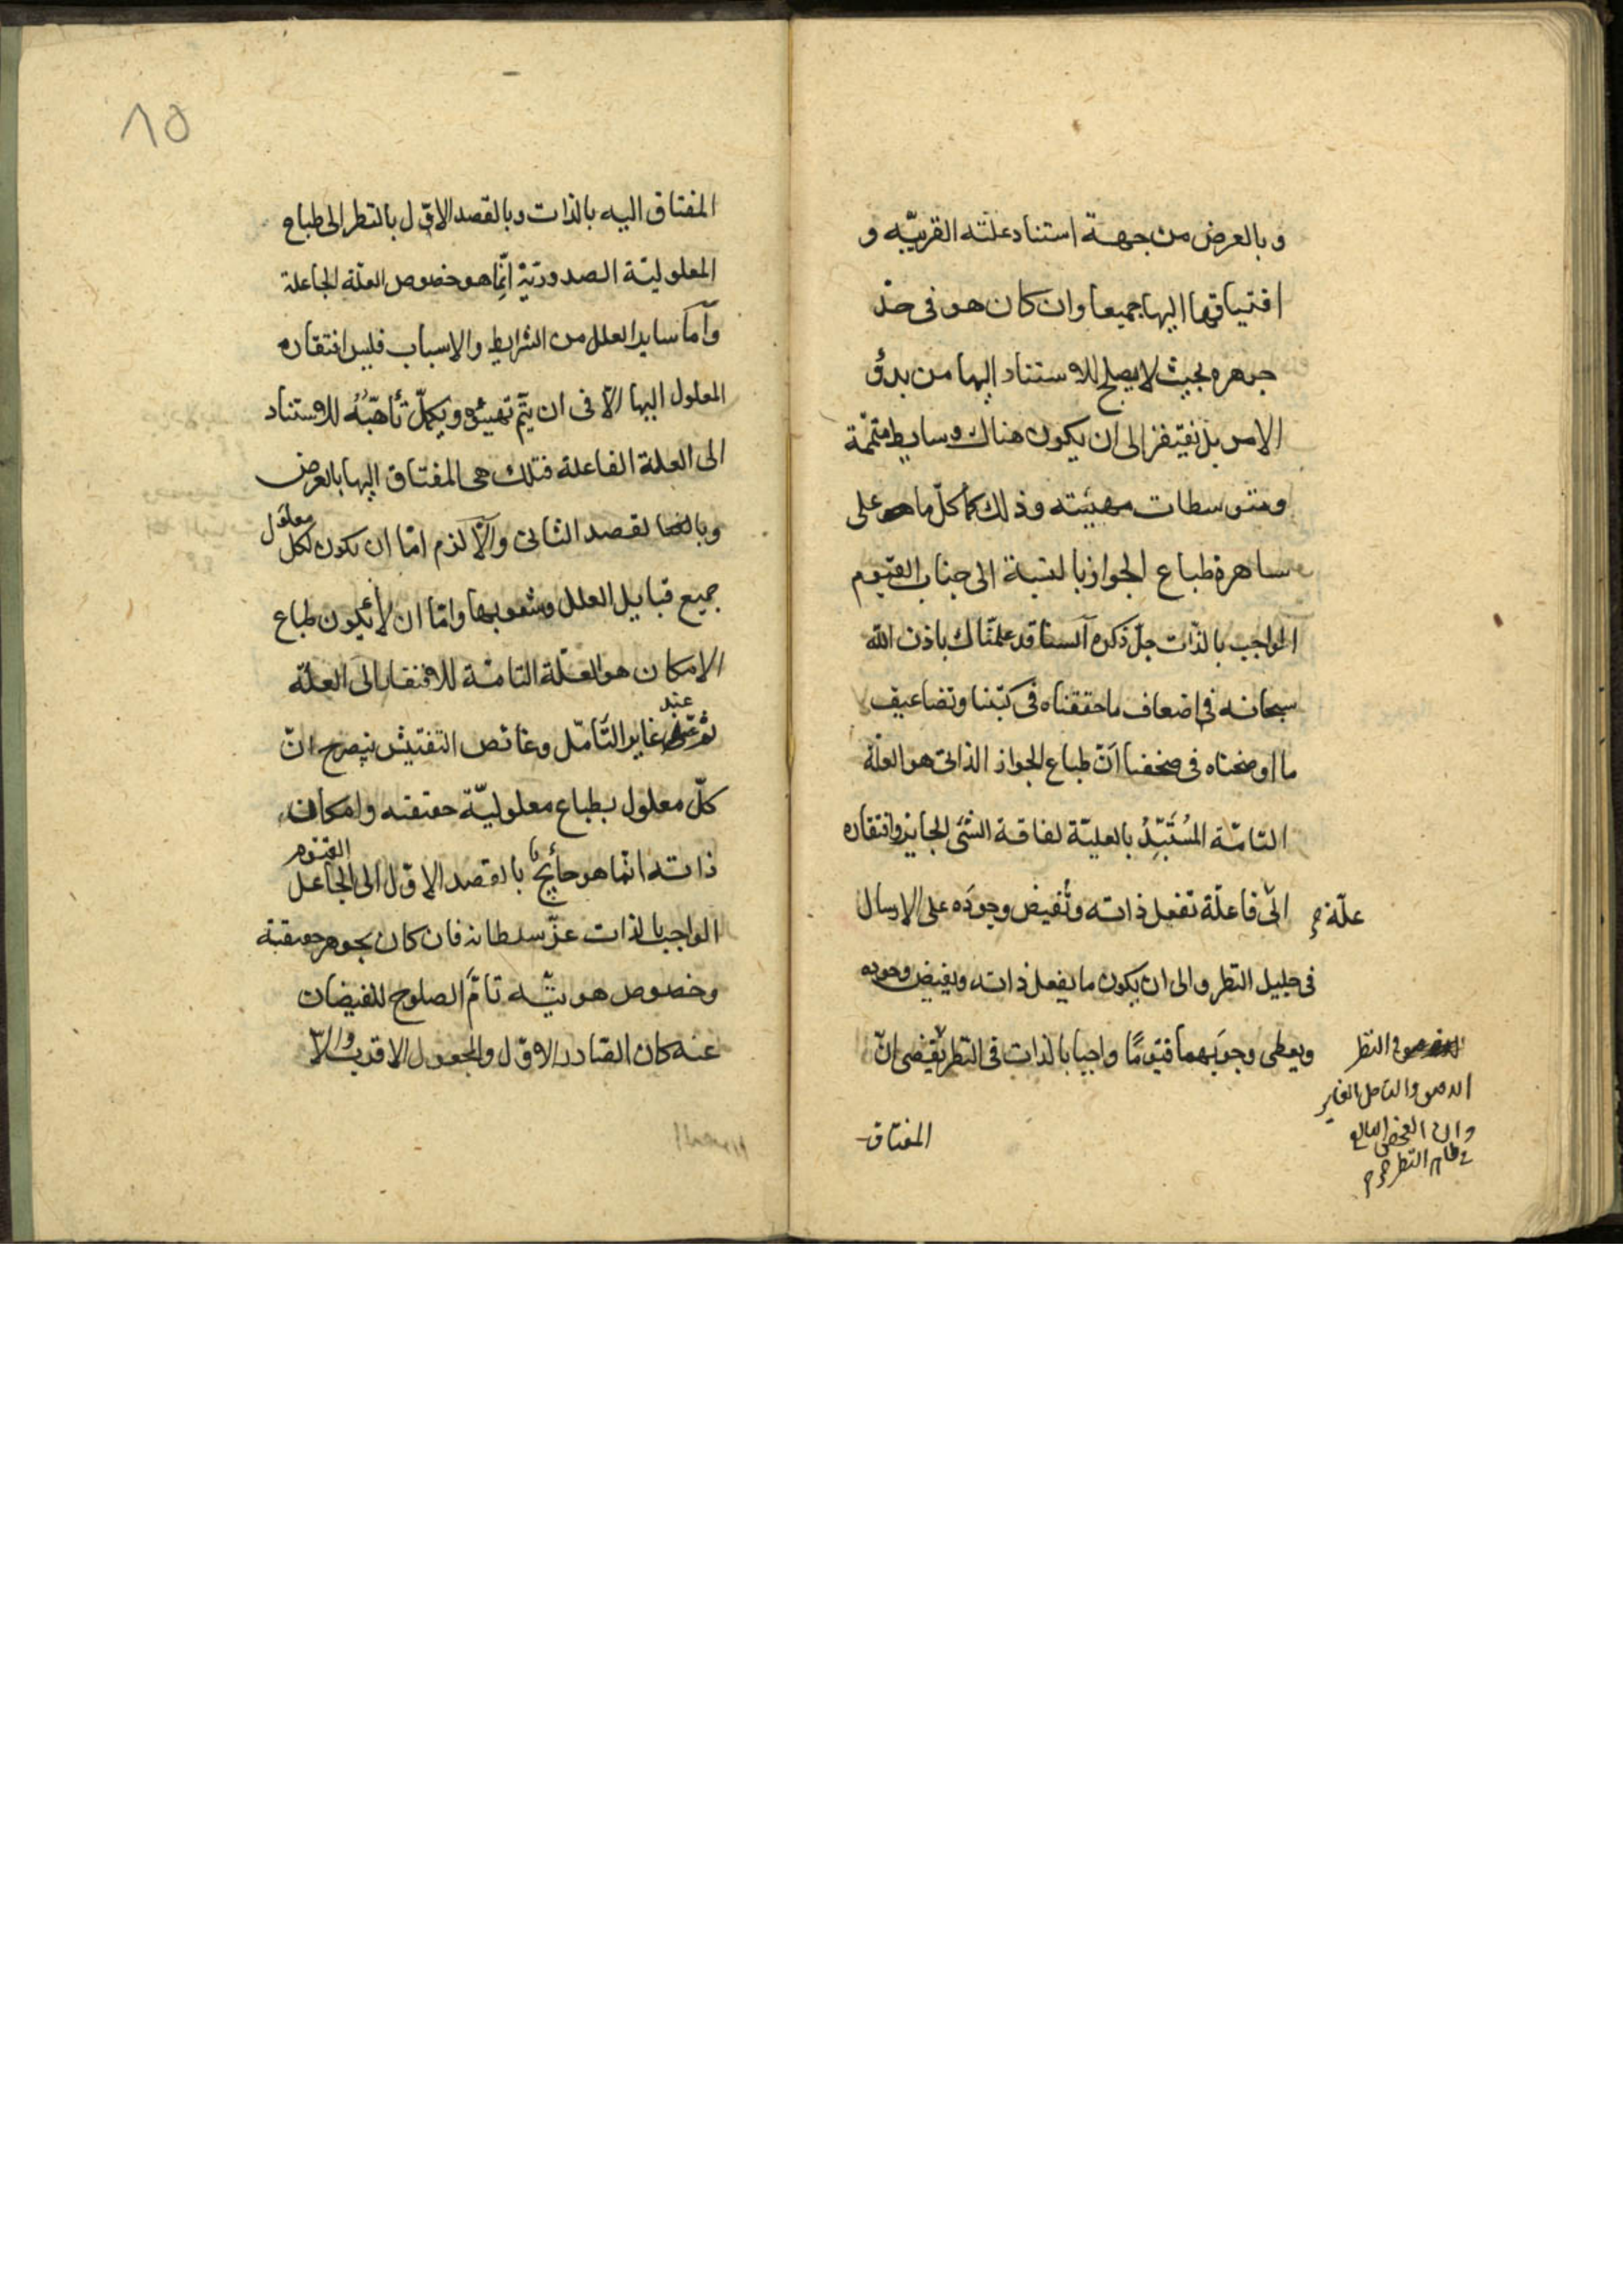 وبالعرض من جهة استناد علته القريبه و
افتياقها اليها جميعا وان كان هو فى حدّ
جوهره بحيث لا يصلح للاستناد اليها من بدوُ
الامر بل يفتقر الى ان يكون هناك وسايط متممة
ومتوسطات مهيئته وذلك كما كلّ ما هو على
ساهرة طباع الجواز بالنسبة الى جناب القيوم
الواجب بالذات جلّ ذكره السنا قد علمناك باذن الله
سبحانه فى اضعاف ما حققناه فى كتبنا وتضاعيف
ما اوضحناه فى صحفنا انّ طباع الجواز الذاتى هو العلة
التامّة المُسْتَبِّدُ بالعليّة لفاقة الشئ الجايز وافتقاره
الى فاعلة تفعل ذاته وتُفيض وجودَه على الارسال
علّة
فى جليل النظر والى ان يكون ما يفعل ذاته ويفيض وجوده
ويعطى وجوبهما قيّومًا واجبا بالذات فى النظر يقتضى انّ
فى النظر
الدقيق والتامل الغاير
وان الفحص البالغ
النظر
المفتاق
٨٥
المفتاق اليه بالذات وبالقصد الاوّل بالنظر الى طباع
المعلوليّة الصدوريّة انّما هو خصوص العلّة الجاعلة
وأما ساير العلل من الشرايط والاسباب فليس افتقاره
المعلول اليها الّا فى ان يتّم تهيئؤه ويكمل تأهّبُهُ للاستناد
الى العلة الفاعلة فتلك هى المفتاق اليها بالعرض
وبالقصد الثانى والّا لزم امّا ان يكون لكل معلول
جميع قبايل العلل وشعوبها وامّا ان لا يكون طباع
الامكان هو العلّة التامّة للافتقار الى العلّة
ثم عند غاير التأمّل وغائص التفتيش ينصرح انّ
كلّ معلول بطباع معلوليّة حقيقته وامكان
ذاته انّما هو حائج بالقصد الاوّل الى الجاعل القيّوم
الواجب بالذات عزّ سلطانه فان كان بجوهر حقيقته
وخصوص هويّته تامّ الصلوح للفيضان
عنه كان الصادر الاوّل والمجعول الاقرب والّا